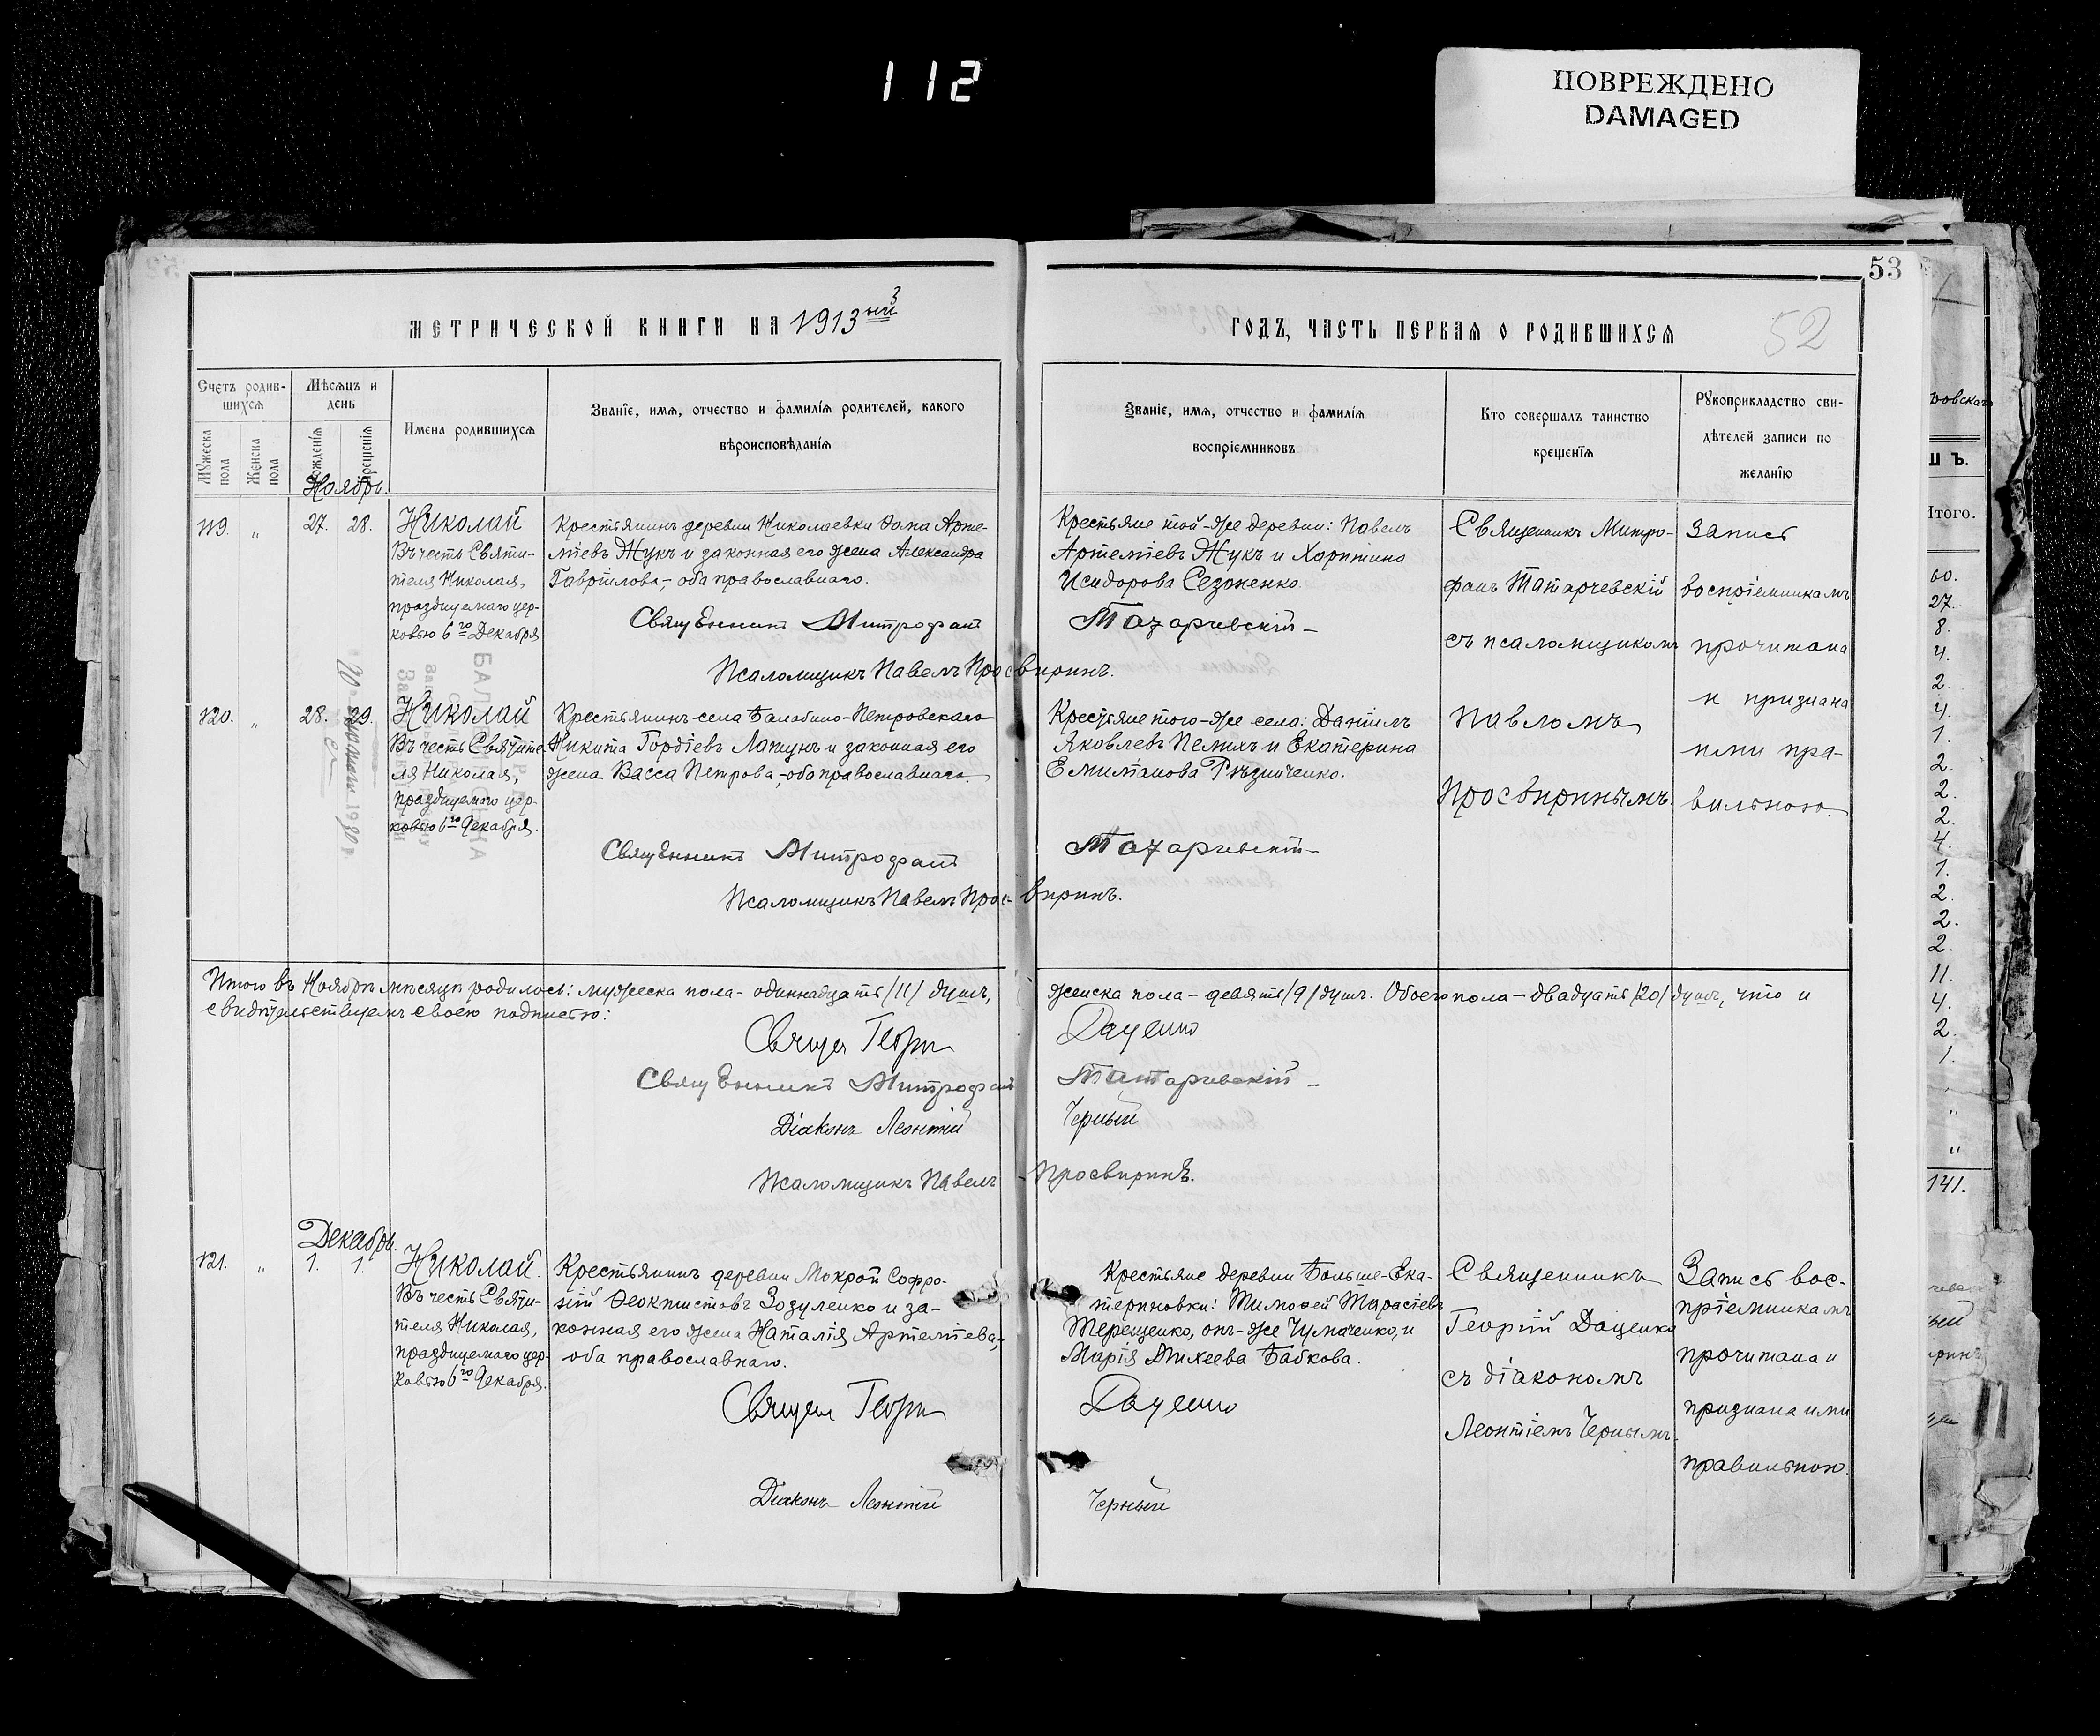 112
ПОВРЕЖДЕНО
DAMAGED
53
52
МЕТРИЧЕСКОЙ КНИГИ НА 1913 ый 3
ГОДЪ, ЧАСТЬ ПЕРВАЯ О РОДИВШИХСЯ
Счетъ родив-
шихся
Мужеска пола
Женска пола
Мѣсяцъ и
день
Рожденія
Крещенія
Имена родившихся
Званіе, имя, отчество и фамилія родителей, какого
вѣроисповѣданія
Званіе, имя, отчество и фамилія
воспріемниковъ
Кто совершалъ таинство
крещенія
Рукоприкладство сви-
дѣтелей записи по
желанію
Ноябрь.
119. „ 27. 28.
Николай
Въ честь Святи-
теля Николая,
празднуемаго цер-
ковью 6го Декабря
Крестьянинъ деревни Николаевки Фома Арте-
міевъ Жукъ и законная его жена Александра
Гавріилова,- оба православнаго.
Священникъ Митрофанъ
Псаломщикъ Павелъ Просвиринъ.
Крестьяне той-же деревни: Павелъ
Артеміевъ Жукъ и Харитина
Исидорова Сезоненко.
Татарчевскій
Священникъ Митро-
фанъ Татарчевскій
съ псаломщикомъ
Павломъ
Просвиринымъ.
Запись
воспріемникамъ
прочитана
и признана
ими пра-
вильною.
120. „ 28. 29.
Николай
Въ честь Святите-
ля Николая,
празднуемаго цер-
ковью 6го Декабря.
Крестьянинъ села Балабино-Петровскаго
Никита Гордіевъ Лапунъ и законная его
жена Васса Петрова,-оба православнаго.
Священникъ Митрофанъ
Псаломщикъ Павелъ Просвиринъ.
Крестьяне того-же села: Даніилъ
Яковлевъ Пелихъ и Екатерина
Емиліанова Рѣзниченко.
Татарчевскій
Итого въ Ноябрѣ мѣсяцѣ родилось: мужеска пола - одиннадцать /11/ душъ, женска пола - девять /9/ душъ. Обоего пола - двадцать /20/ душъ, что и
свидѣтельствуемъ своею подписью:
Священ Георгій Даценко
Священникъ Митрофанъ Татарчевскій
Діаконъ Леонтій Черный
Псаломщикъ Павелъ Просвиринъ.
Декабрь.
121. „ 1. 1.
Николай.
Въ честь Святи-
теля Николая,
празднуемаго цер-
ковью 6го Декабря.
Крестьянинъ деревни Мокрой Софро-
ній Ѳеоктистовъ Зозуленко и за-
конная его жена Наталія Артеміева,-
оба православнаго.
Священ Георгій
Діаконъ Леонтій
Крестьяне деревни Больше-Ека-
териновки: Тимоѳей Тарасіевъ
Терещенко, онъ-же Чумаченко, и
Марія Михеева Бабкова.
Даценко
Черный
Священникъ
Георгій Даценко
съ діакономъ
Леонтіемъ Чернымъ.
Запись вос-
пріемникамъ
прочитана и
признана ими
правильною.
Ш Ъ.
Итого.
60.
27.
8.
4.
2.
4.
1.
2.
2.
2.
4.
1.
2.
2.
2.
11.
4.
2.
1.
„
„
141.